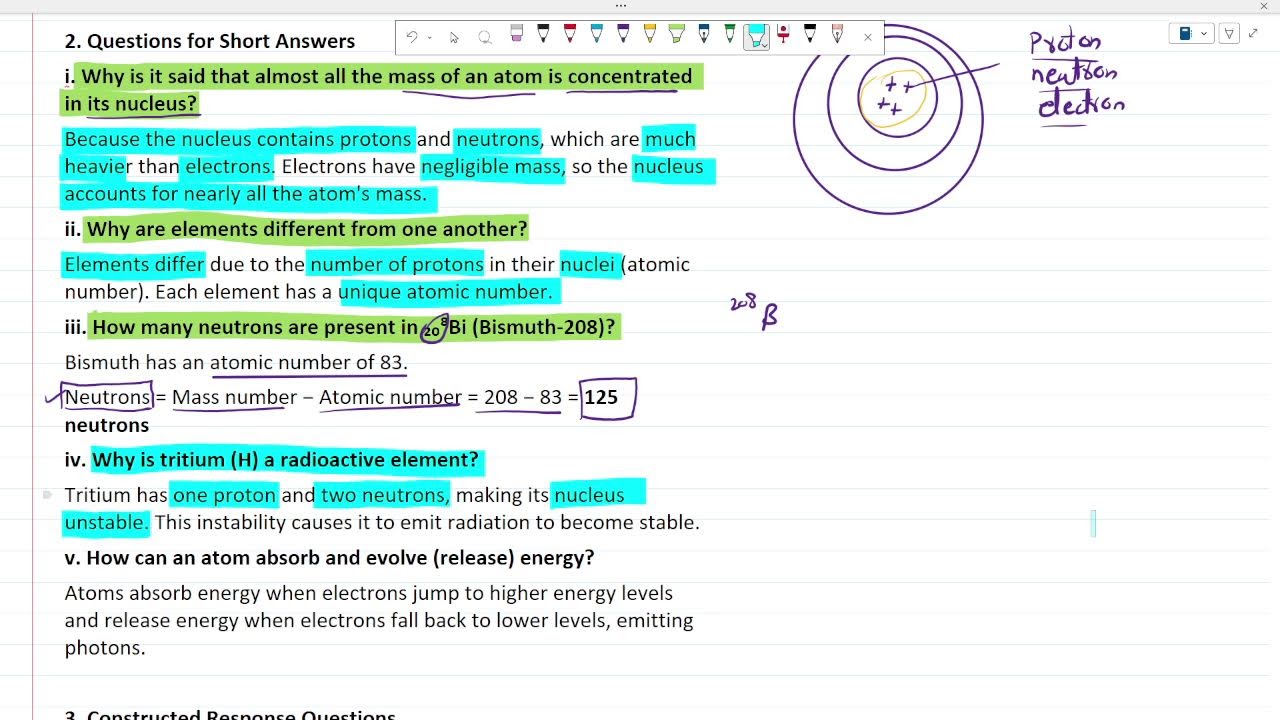 2. Questions for Short Answers
i. Why is it said that almost all the mass of an atom is concentrated
in its nucleus?
Because the nucleus contains protons and neutrons, which are much
heavier than electrons. Electrons have negligible mass, so the nucleus
accounts for nearly all the atom's mass.
ii. Why are elements different from one another?
Elements differ due to the number of protons in their nuclei (atomic
number). Each element has a unique atomic number.
iii. How many neutrons are present in ₂₀⁸Bi (Bismuth-208)?
Bismuth has an atomic number of 83.
Neutrons = Mass number − Atomic number = 208 − 83 = 125
neutrons
iv. Why is tritium (H) a radioactive element?
Tritium has one proton and two neutrons, making its nucleus
unstable. This instability causes it to emit radiation to become stable.
v. How can an atom absorb and evolve (release) energy?
Atoms absorb energy when electrons jump to higher energy levels
and release energy when electrons fall back to lower levels, emitting
photons.
3. Constructed Response Questions
Proton
neutron
electron
+ +
+ +
²⁰⁸β